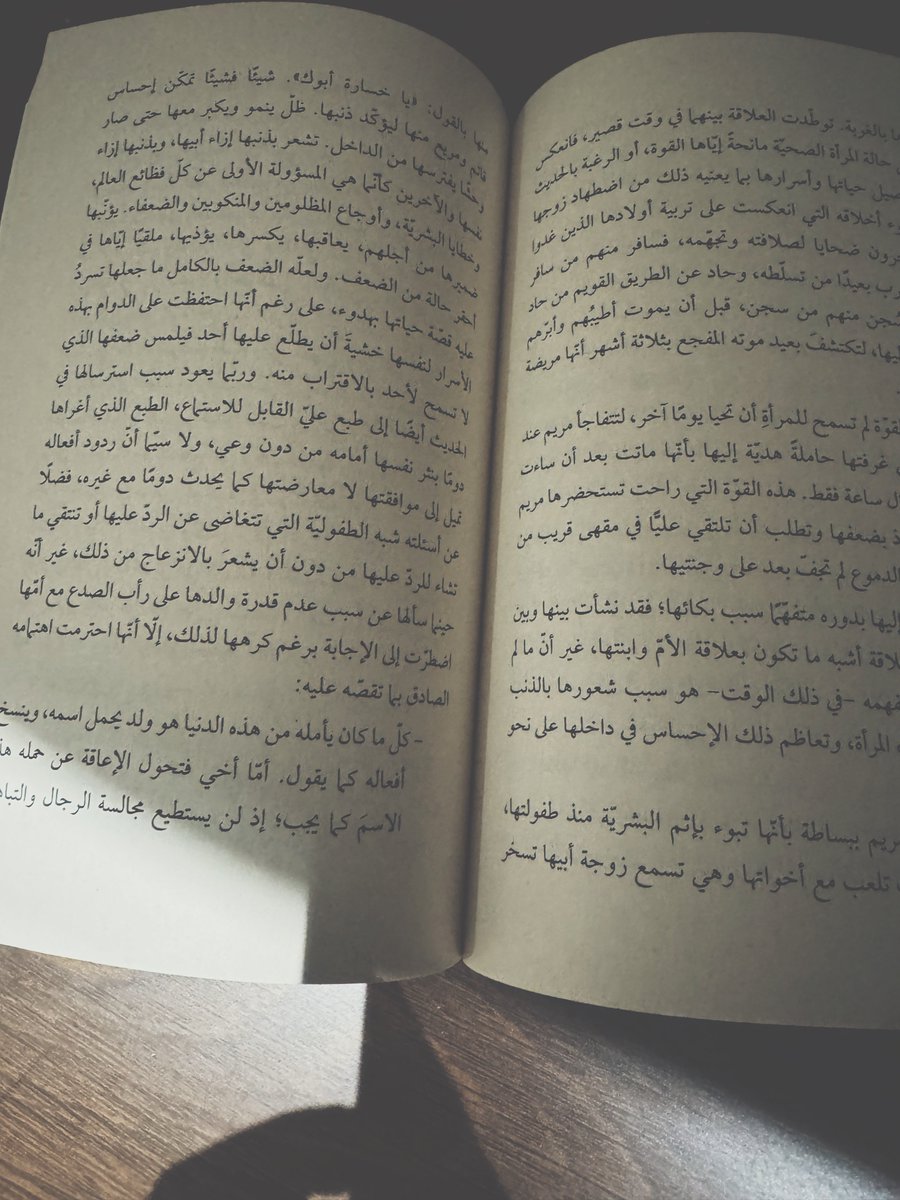 بالغربة. توطّدت العلاقة بينهما في وقت قصير، فانعكس
حالة المرأة الصحيّة مانحةً إيّاها القوة، أو الرغبة بالحديث
حياتها وأسرارها بما يعنيه ذلك من اضطهاد زوجها
أخلاقه التي انعكست على تربية أولادها الذين غدوا
ضحايا لصلافته وتجهّمه، فسافر منهم من سافر
بعيدًا من تسلّطه، وحاد عن الطريق القويم من حاد
منهم من سجن، قبل أن يموت أطيبُهم وأبرّهم
لتكتشفَ بعيد موته المفجع بثلاثة أشهر أنّها مريضة
لم تسمح للمرأةِ أن تحيا يومًا آخر، لتتفاجأ مريم عند
غرفتها حاملةً هديّة إليها بأنّها ماتت بعد أن ساءت
ساعة فقط. هذه القوّة التي راحت تستحضرها مريم
بضعفها وتطلب أن تلتقي عليًّا في مقهى قريب من
الدموع لم تجفّ بعد على وجنتيها.
بدوره متفهّمًا سبب بكائها؛ فقد نشأت بينها وبين
أشبه ما تكون بعلاقة الأمّ وابنتها، غير أنّ ما لم
-في ذلك الوقت- هو سبب شعورها بالذنب
المرأة، وتعاظم ذلك الإحساس في داخلها على نحو
ببساطة بأنّها تبوء بإثم البشريّة منذ طفولتها،
تلعب مع أخواتها وهي تسمع زوجة أبيها تسخر
منها بالقول: «يا خسارة أبوك». شيئًا فشيئًا تمكّن إحساس
قاتم ومريع منها ليؤكّد ذنبها. ظلّ ينمو ويكبر معها حتى صار
وحشًا يفترسها من الداخل. تشعر بذنبها إزاء أبيها، وبذنبها إزاء
نفسها والآخرين كأنّما هي المسؤولة الأولى عن كلّ فظائع العالم،
وخطايا البشريّة، وأوجاع المظلومين والمنكوبين والضعفاء. يؤنّبها
ضميرها من أجلهم، يعاقبها، يكسرها، يؤذيها، ملقيًا إيّاها في
احقر حالة من الضعف. ولعلّه الضعف بالكامل ما جعلها تسردُ
عليه قصّة حياتها بهدوء، على رغم أنّها احتفظت على الدوام بهذه
الأسرار لنفسها خشيةَ أن يطلّع عليها أحد فيلمس ضعفها الذي
لا تسمح لأحد بالاقتراب منه. وربّما يعود سبب استرسالها في
الحديث أيضًا إلى طبع عليّ القابل للاستماع، الطبع الذي أغراها
دومًا بنثر نفسها أمامه من دون وعي، ولا سيّما أنّ ردود أفعاله
تميل إلى موافقتها لا معارضتها كما يحدث دومًا مع غيره، فضلًا
عن أسئلته شبه الطفوليّة التي تتغاضى عن الردّ عليها أو تنتقي ما
تشاء للردّ عليها من دون أن يشعرَ بالانزعاج من ذلك، غير أنّه
حينما سألها عن سبب عدم قدرة والدها على رأب الصدع مع أمّها
اضطرّت إلى الإجابة برغم كرهها لذلك، إلّا أنّها احترمت اهتمامه
الصادق بما تقصّه عليه:
- كلّ ما كان يأمله من هذه الدنيا هو ولد يحمل اسمه، وينسخ
أفعاله كما يقول. أمّا أخي فتحول الإعاقة عن حمله
الاسمَ كما يجب؛ إذ لن يستطيع مجالسة الرجال